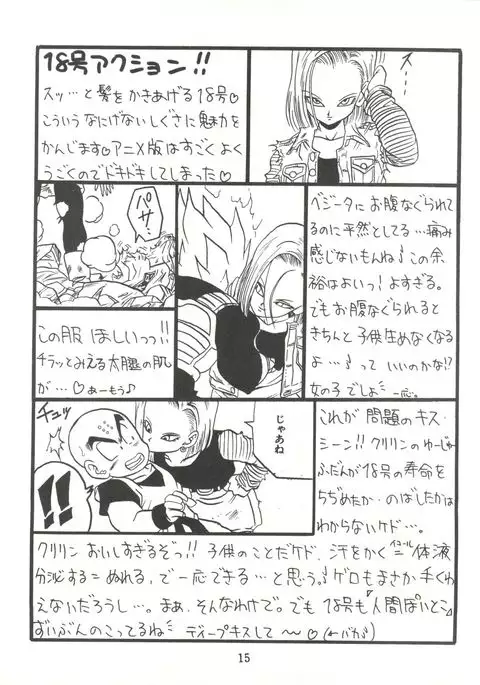 18号アクション!!
スッ…と髪をかきあげる18号♡
こういうなにげないしぐさに魅力を
かんじます♡アニメ版はすごくよく
うごくのでドキドキしてしまった♡
スッ…
パサ…
この服 ほしいっっ!!
チラッとみえる太腿の肌
が…♡あーもう♪
ベジータにお腹なぐられて
るのに平然としてる…痛み
感じないもんね この余
裕はよいっ!よすぎる。
でもお腹なぐられると
きちんと子供生めなくなる
よ…って いいのかな!?
女の子でしょ 一応。
チュッ
じゃあね
!!
これが 問題のキス・
シーン!! クリリンのゆーじゅ
ふだんが18号の寿命を
ちぢめたか・のばしたかは
わからないケド…。
クリリン おいしすぎるぞっ!! 子供のことだケド、汗をかく イコール= 体液
分泌する=ぬれる、で一応できる…と思う。ゲロもまさか手くわ
えないだろうし…。まぁ、そんなわけで。でも18号も「人間ぽいとこ」
ずいぶんのこってるね ディープキスして〜♡(←バカ)
15